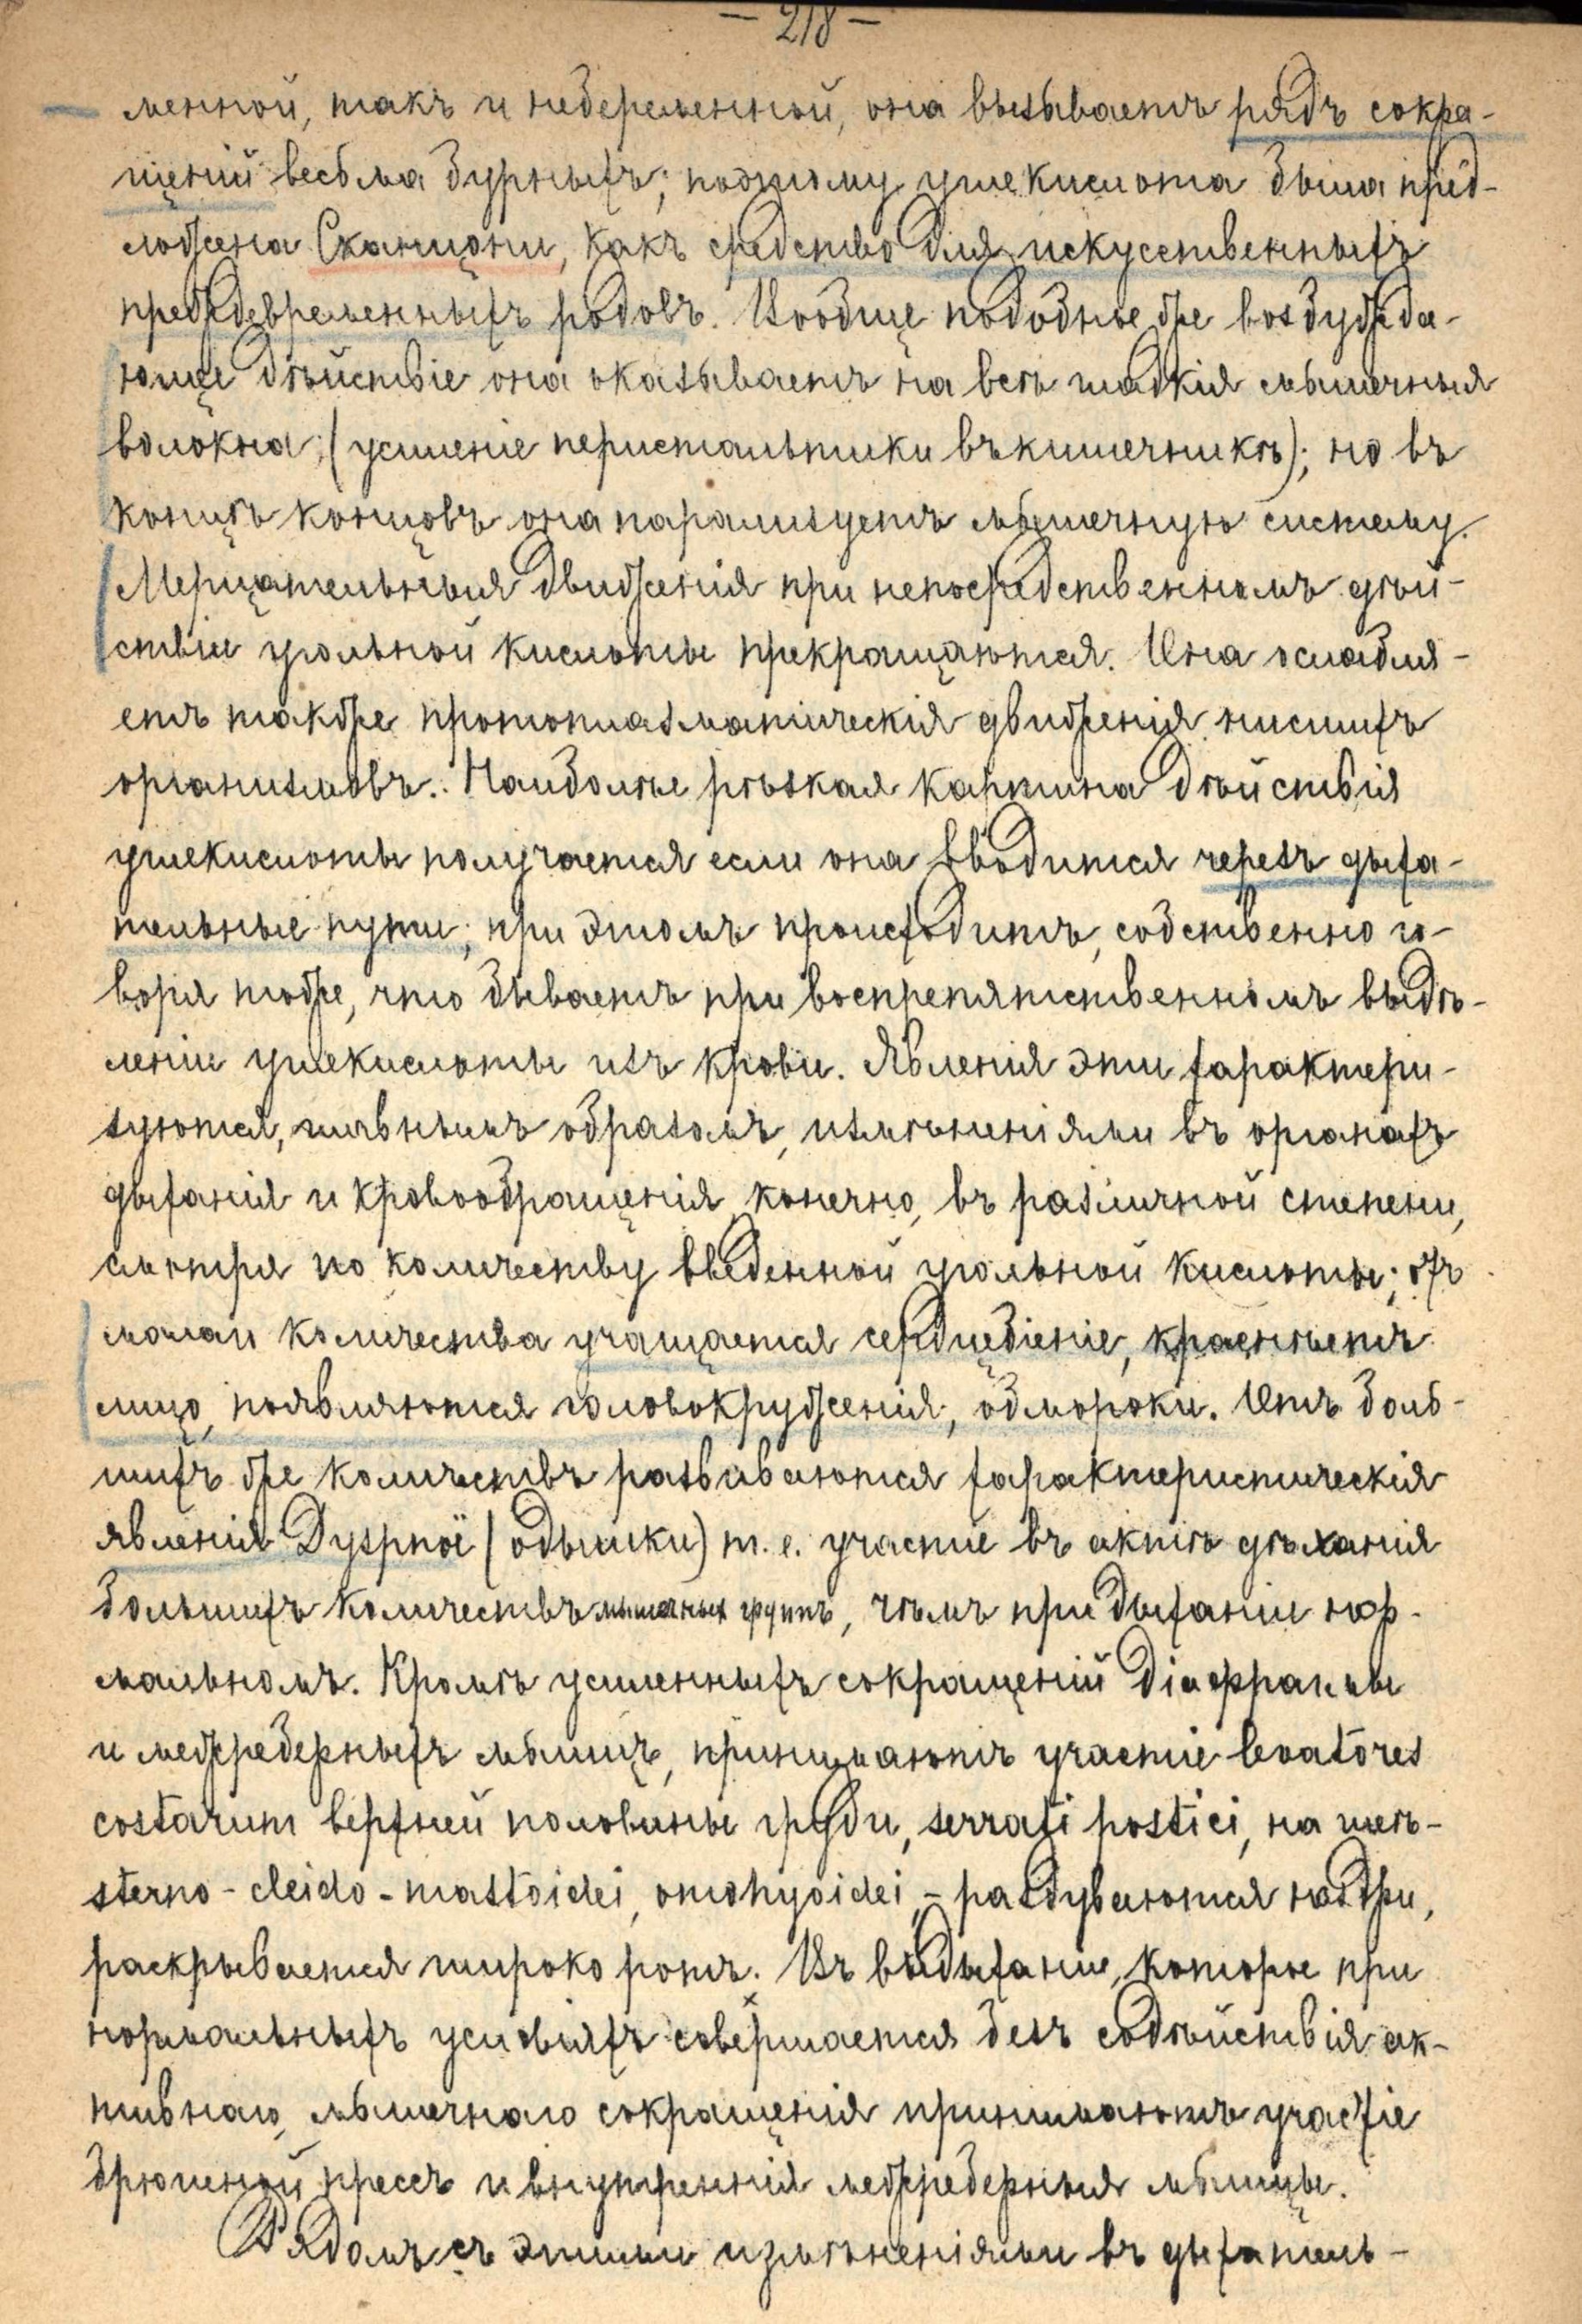 — 218 —
менной, такъ и небеременной, она вызываетъ рядъ сокра-
щеній весьма бурныхъ; поэтому углекислота была пред-
ложена Сканцони, какъ средство для искусственныхъ
преждевременныхъ родовъ. Вообще подобное же возбужда-
ющее дѣйствіе она оказываетъ на всѣ гладкія мышечныя
волокна; (усиленіе перистальтики въ кишечникѣ); но въ
концѣ концовъ она парализуетъ мышечную систему.
Мерцательныя движенія при непосредственномъ дѣй-
ствіи угольной кислоты прекращаются. Она ослабля-
етъ также протоплазматическія движенія низшихъ
организмовъ. Наиболѣе рѣзкая картина дѣйствія
углекислоты получается если она вводится черезъ дыха-
тельные пути; при этомъ происходитъ, собственно го-
воря тоже, что бываетъ при воспрепятственномъ выдѣ-
леніи углекислоты изъ крови. Явленія эти характери-
зуются, главнымъ образомъ, измѣненіями въ органахъ
дыханія и кровообращенія конечно, въ различной степени,
смотря по количеству введенной угольной кислоты; отъ
малаго количества учащается сердцебіеніе, краснѣетъ
лицо, появляются головокруженія, обмороки. Отъ боль-
шихъ же количествъ развиваются характеристическія
явленія Dyspnoë (одышки) т. е. участіе въ актѣ дыханія
большихъ количествъ мышечныхъ группъ, чѣмъ при дыханіи нор-
мальномъ. Кромѣ усиленныхъ сокращеній діафрагмы
и межреберныхъ мышцъ, принимаютъ участіе levatores
costarum верхней половины груди, serrati postici, на шеѣ-
sterno-cleido-mastoidei, omohyoidei, - раздуваются ноздри,
раскрывается широко ротъ. Въ выдыханіи, которое при
нормальныхъ условіяхъ совершается безъ содѣйствія ак-
тивнаго, мышечнаго сокращенія принимаютъ участіе
брюшной прессъ и внутреннія межреберныя мышцы.
Рядомъ съ этими измѣненіями въ дыхатель-